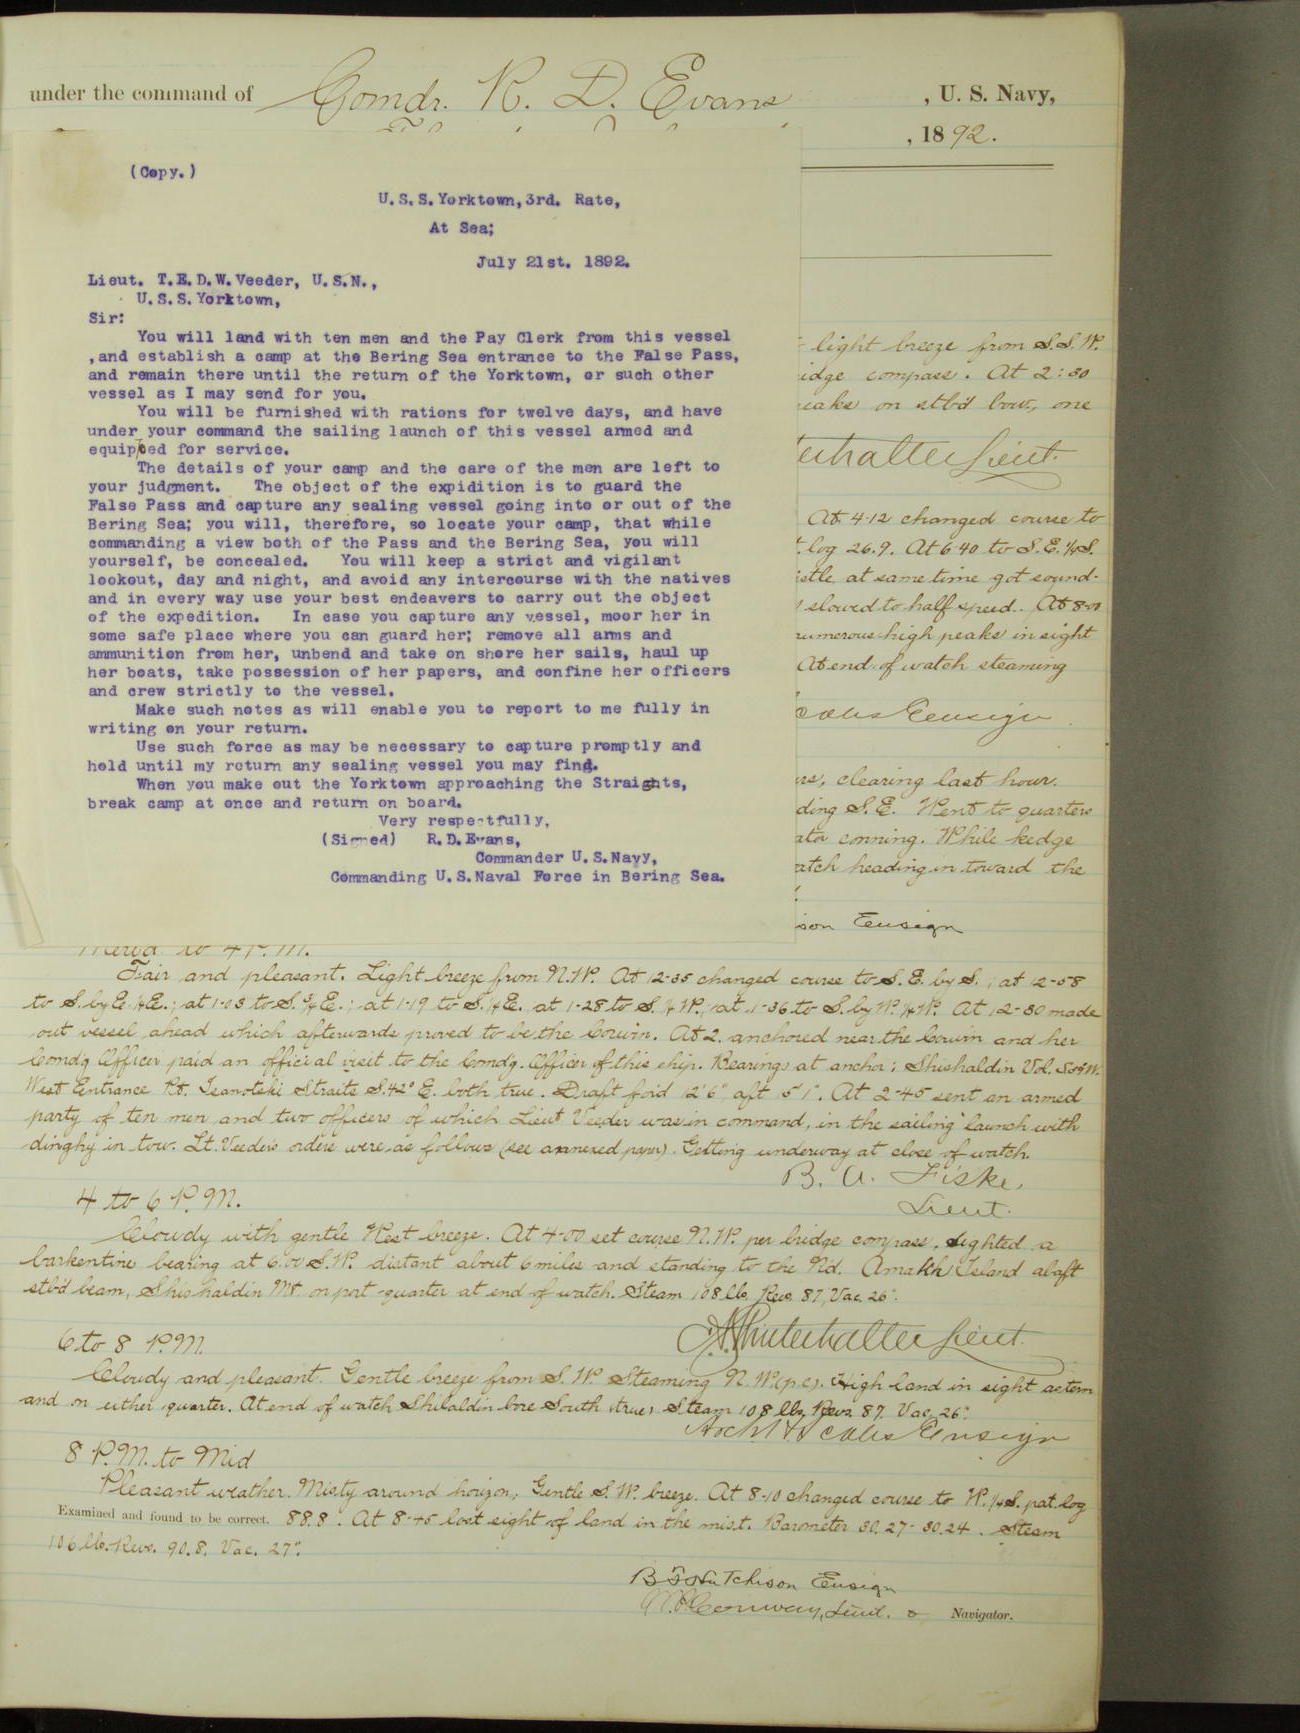 under the command of Comdr. R. D. Evans, U. S. Navy,
, 1892.
(Copy.)
U.S.S.Yorktown,3rd. Rate,
At Sea;
July 21st. 1892.
Lieut. T.E.D.W.Veeder, U.S.N.,
U.S.S.Yorktown,
Sir:
You will land with ten men and the Pay Clerk from this vessel
,and establish a camp at the Bering Sea entrance to the False Pass,
and remain there until the return of the Yorktown, or such other
vessel as I may send for you.
You will be furnished with rations for twelve days, and have
under your command the sailing launch of this vessel armed and
equipped for service.
The details of your camp and the care of the men are left to
your judgment. The object of the expidition is to guard the
False Pass and capture any sealing vessel going into or out of the
Bering Sea; you will, therefore, so locate your camp, that while
commanding a view both of the Pass and the Bering Sea, you will
yourself, be concealed. You will keep a strict and vigilant
lookout, day and night, and avoid any intercourse with the natives
and in every way use your best endeavers to carry out the object
of the expedition. In case you capture any vessel, moor her in
some safe place where you can guard her; remove all arms and
ammunition from her, unbend and take on shore her sails, haul up
her boats, take possession of her papers, and confine her officers
and crew strictly to the vessel.
Make such notes as will enable you to report to me fully in
writing on your return.
Use such force as may be necessary to capture promptly and
hold until my return any sealing vessel you may find.
When you make out the Yorktown approaching the Straights,
break camp at once and return on board.
Very respectfully,
(Signed) R.D.Evans,
Commander U.S.Navy,
Commanding U.S.Naval Force in Bering Sea.
light breeze from S.S.W.
compass. At 2:30
on stb'd bow, one
Lieut.
At 4-12 changed course to
log 26.9. At 6 40 to S.E. 1/4 S.
at same time got sound-
slowed to half speed. At 8-00
numerous high peaks in sight
At end of watch steaming
Ensign
clearing last hour.
S.E. Went to quarters
conning. While kedge
heading in toward the
Ensign
Merid to 4 P.M.
Fair and pleasant. Light breeze from N.W. At 12-35 changed course to S.E. by S.; at 12-58
to S. by E. 1/4 E.; at 1-03 to S. 3/4 E.; at 1-19 to S. 1/4 E. at 1-28 to S. 1/4 W.; at 1-36 to S. by W. 1/4 W. At 12-30 made
out vessel ahead which afterwards proved to be the Corwin. At 2. anchored near the Corwin and her
Comd'g Officer paid an official visit to the Comd'g. Officer of this ship. Bearings at anchor; Shishaldin Vol.
West Entrance Pt. Isanotski Straits S. 42° E. both true. Draft for'd 12' 6" aft At 2-45 sent an armed
party of ten men and two officers of which Lieut Veeder was in command, in the sailing launch with
dinghy in tow. Lt. Veeder's orders were as follows (see annexed paper). Getting underway at close of watch.
B. A. Fiske,
Lieut.
4 to 6 P.M.
Cloudy with gentle West breeze. At 4-00 set course N.W. per bridge compass. Sighted a
barkentine bearing at 6.00 S.W. distant about 6 miles and standing to the Nd. Amakh Island abaft
stb'd beam, Shishaldin Mt on port quarter at end of watch. Steam 108 lb. Rev. 87, Vac. 26".
Winterhalter Lieut.
6 to 8 P.M.
Cloudy and pleasant. Gentle breeze from S.W. Steaming N.W. (p.c.). High land in sight astern
and on either quarter. At end of watch Shisaldin bore South true; Steam 108 lbs, Revs. 87. Vac. 26".
Ensign
8 P.M. to Mid
Pleasant weather. Misty around horizon; Gentle S.W. breeze. At 8-10 changed course to W. 1/4 S. pat. log
Examined and found to be correct. 88.8. At 8-45 lost sight of land in the mist. Barometer 30.27-30.24. Steam
106 lb. Rev. 90.8. Vac. 27".
Hutchison Ensign
Conway, Lieut. & Navigator.